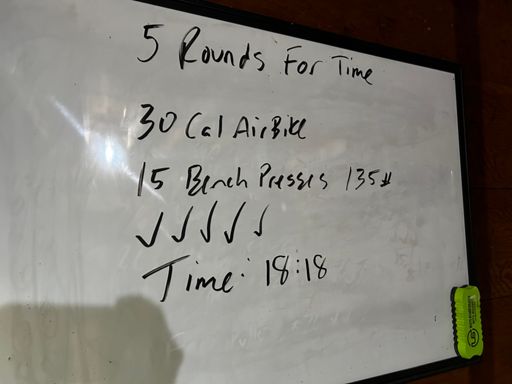 5 Rounds For Time
30 Cal AirBike
15 Bench Presses 135#
✓ ✓ ✓ ✓ ✓
Time: 18:18